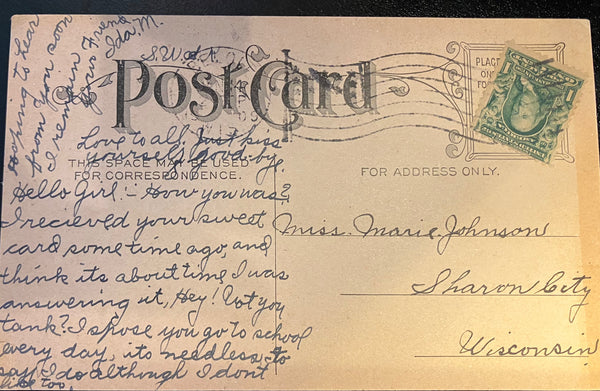 Hoping to hear
from you soon
I remain
Your Friend
Ida. M.
S.W.&N.
Post Card
Love to all Just kiss
yourself good-by.
THIS SPACE MAY BE USED
FOR CORRESPONDENCE.
FOR ADDRESS ONLY.
Hello Girl:- How you was?
I recieved your sweet
card some time ago, and
think its about time I was
answering it, Hey! Vot you
tank? I spose you go to school
every day, its needless to
say I do although I dont
like too.
Miss. Marie Johnson
Sharon City
Wisconsin
PLACE
ON
FO
1